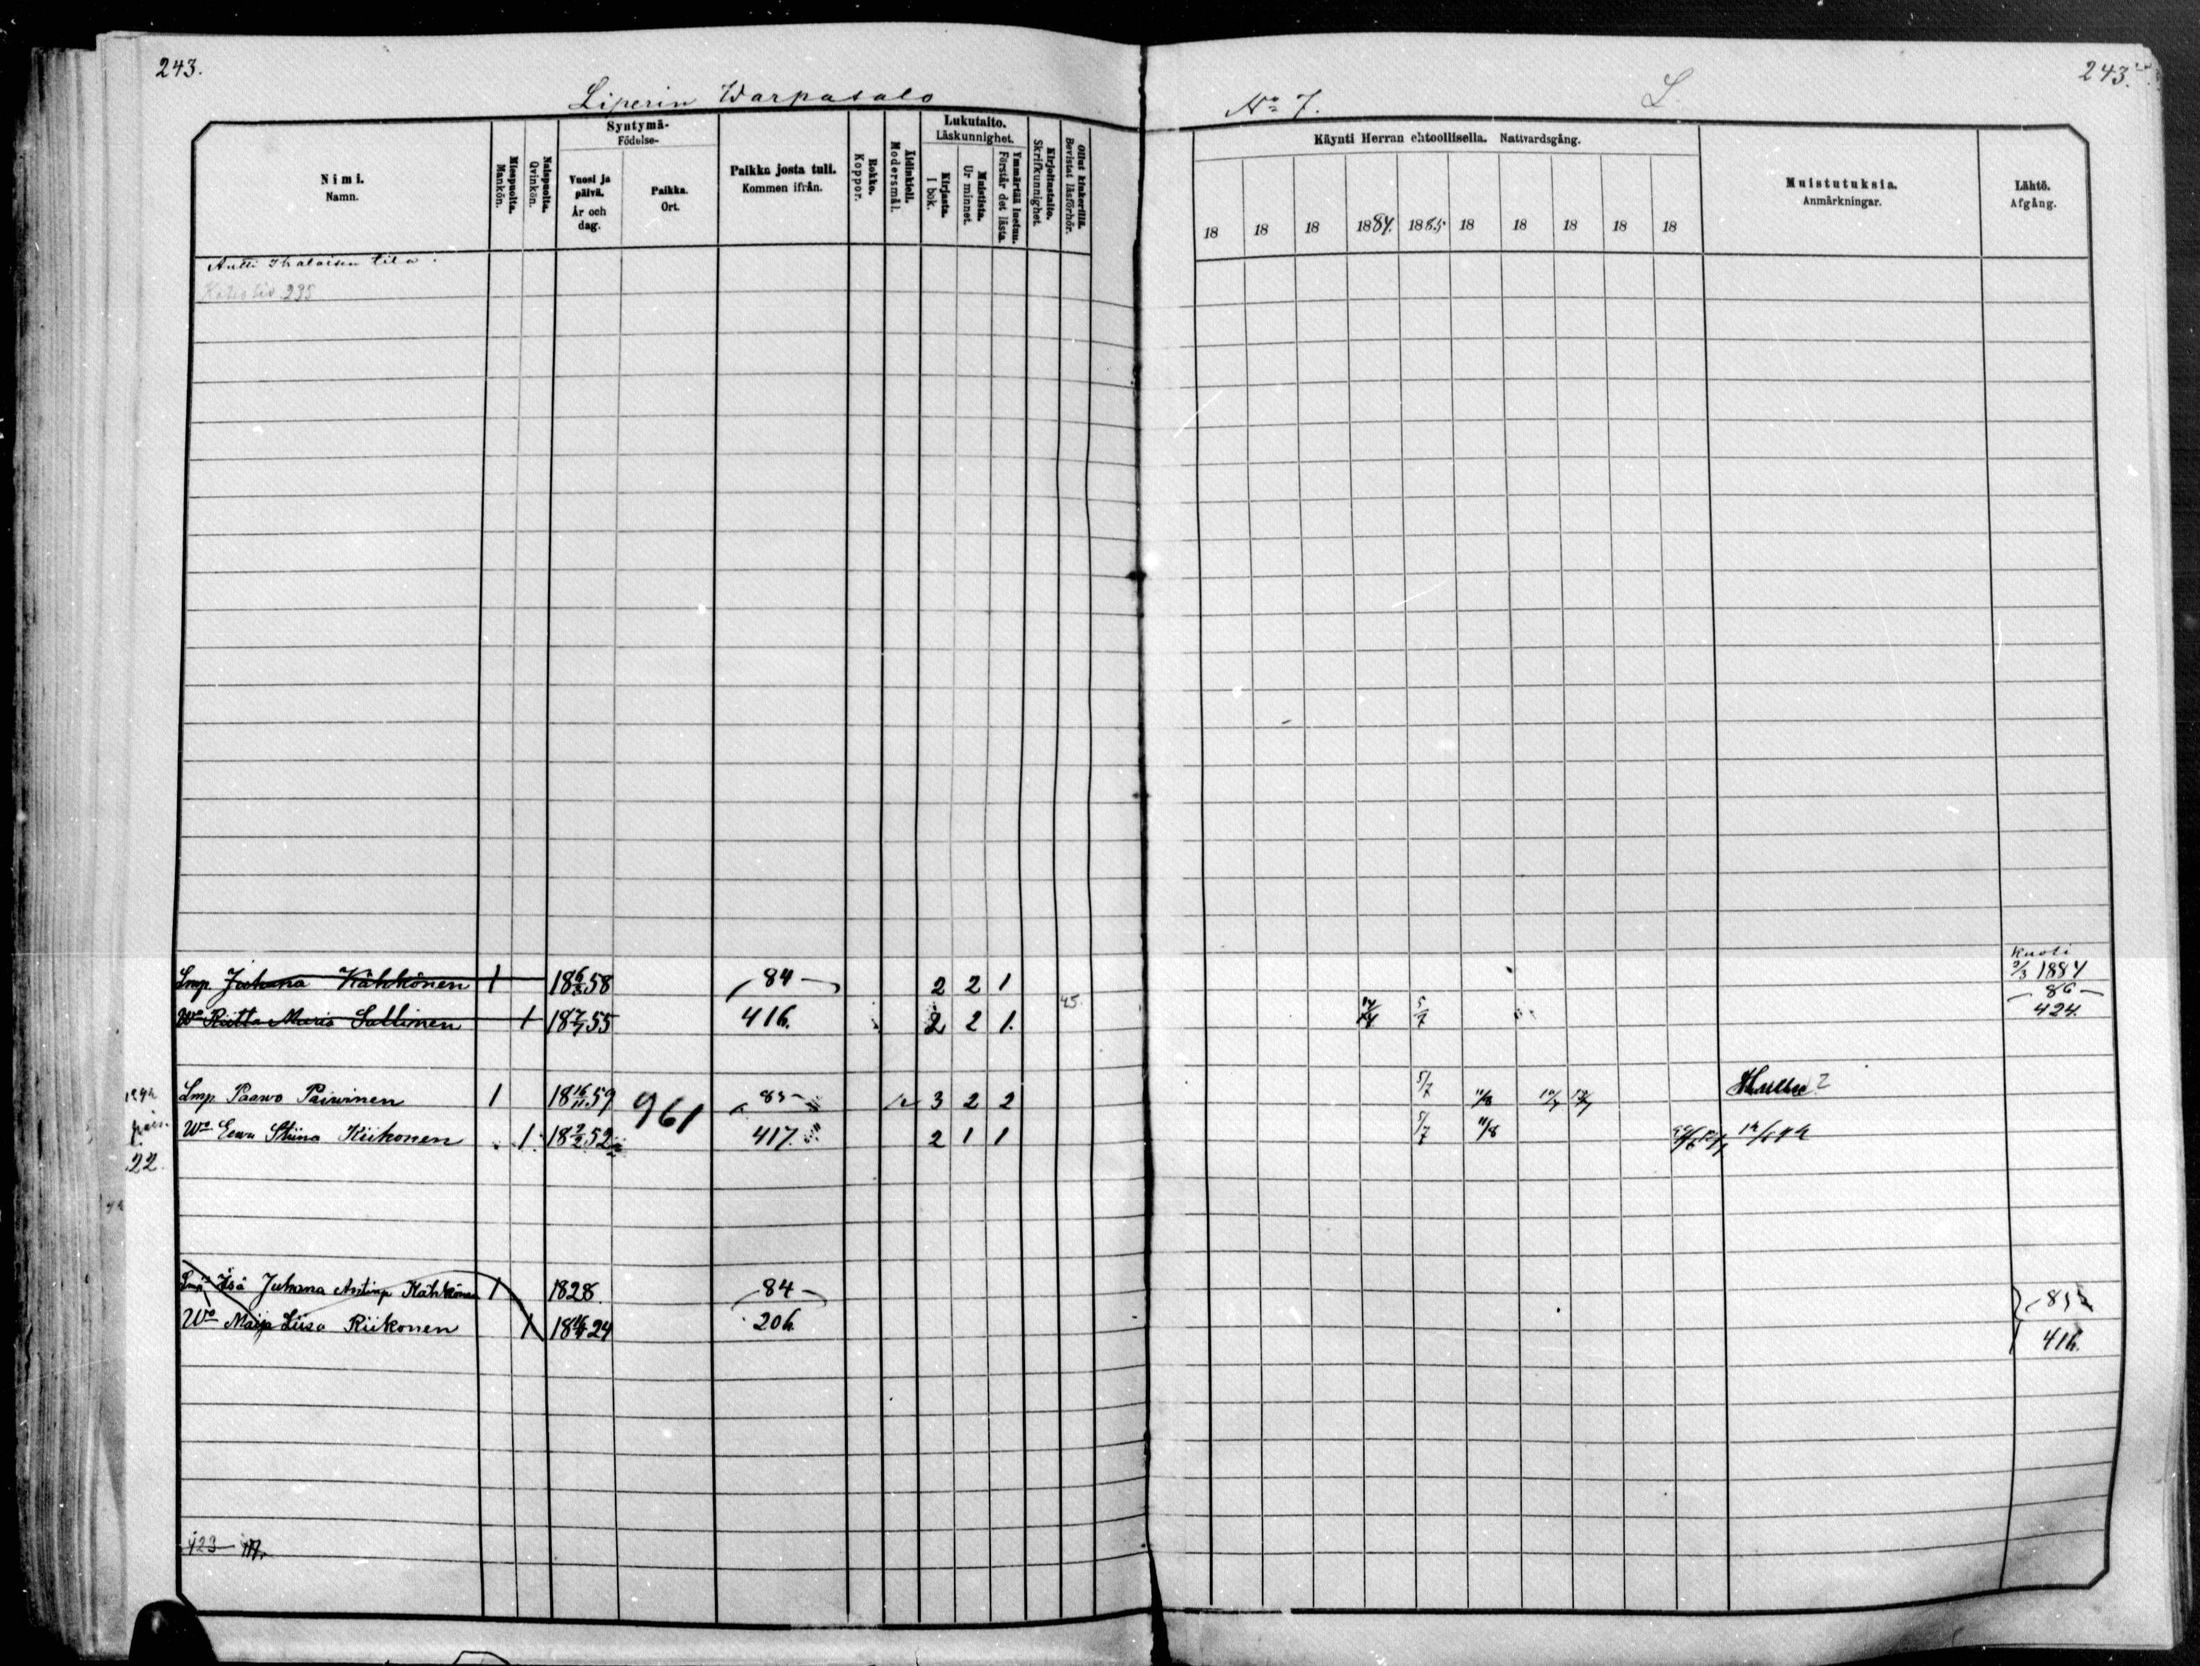 243.
Liperin Warpasalo
No 7.
L.
243.
Nimi.
Namn.
Miespuolta.
Mankön.
Naispuolta.
Qvinkön.
Syntymä-
Födelse-
Vuosi ja päivä.
År och dag.
Paikka.
Ort.
Paikka josta tuli.
Kommen ifrån.
Rokko.
Koppor.
Äidinkieli.
Modersmål.
Lukutaito.
Läskunnighet.
Kirjasta.
I bok.
Muistista.
Ur minnet.
Ymmärtää luetun.
Förstår det lästa.
Kirjoitustaito.
Skrifkunnighet.
Ollut kinkerillä.
Bevistat läsförhör.
Käynti Herran ehtoollisella. Nattvardsgång.
18 18 18 1884. 1885 18 18 18 18 18
Muistutuksia.
Anmärkningar.
Lähtö.
Afgång.
Antti Ihalaisen tila.
235
Kuoli
Lmp. Juhana Kähkönen 1 18 6/3 58 84 2 2 1 2/3 1884
86
Wo Riitta Maria Sallinen 1 18 7/7 55 416. 2 2 1. 45. 5/7 424.
Lmp Paavo Päivinen 1 18 16/11 59 961 85 3 2 2 5/7 11/8
Wo Eeva Stiina Kiikonen 1 18 2/2 52 417. 2 1 1 5/7 11/8
22.
Lmp Isä Juhana Antinp Kähkönen 1 1828. 84 85
Wo Maija Liisa Riikonen 1 24 206. 416.
423